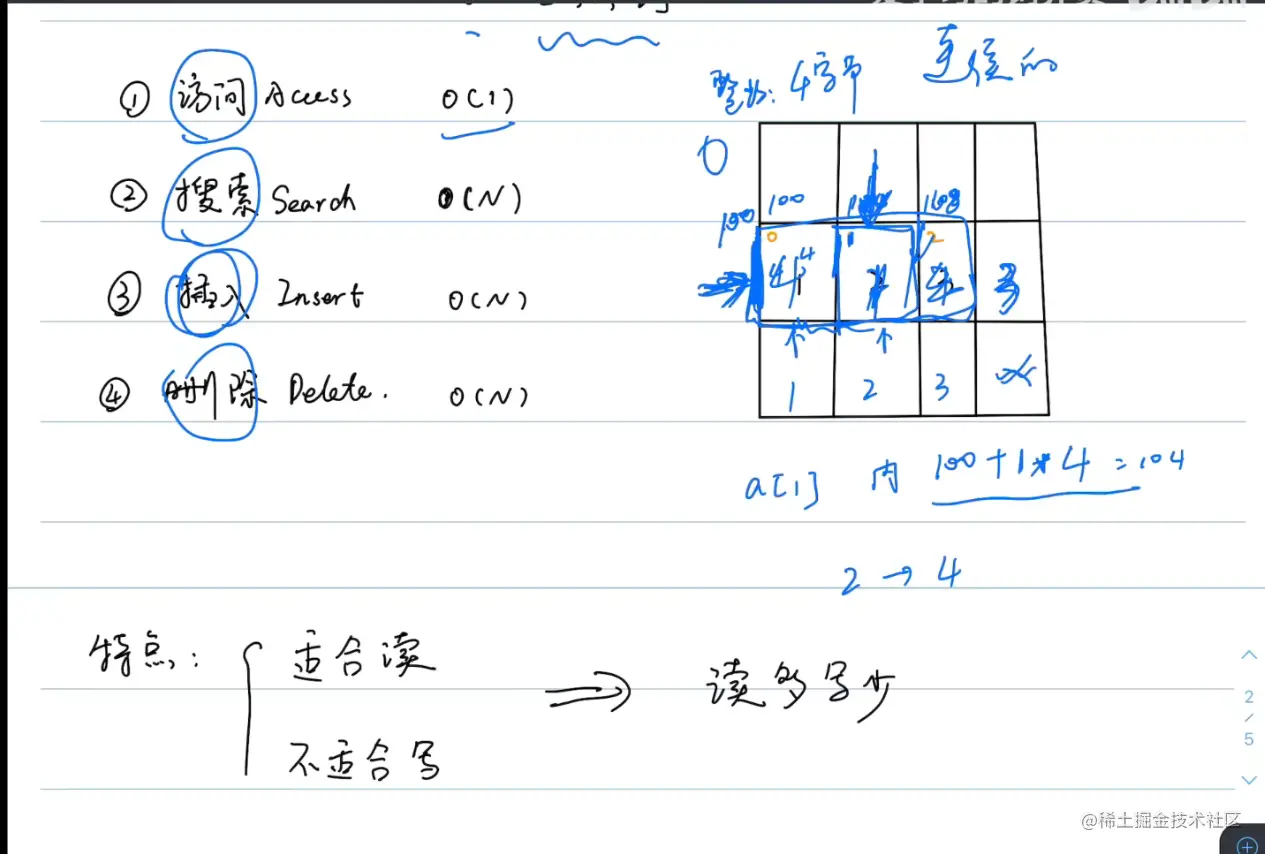 ① 访问 Access O(1)
② 搜索 Search O(N)
③ 插入 Insert O(N)
④ 删除 Delete. O(N)
整数: 4字节 连续的
0
100 100 108
0 1 2
4 3
1 2 3
a[1] 内 100+1*4=104
2→4
特点: 适合读
不适合写
⇒ 读多写少
2
/
5
@稀土掘金技术社区